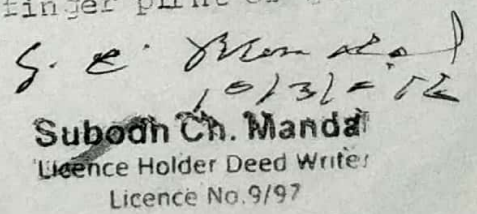 finger
S. C. Mandal
Subodh Ch. Mandal
Licence Holder Deed Writer
Licence No.9/97